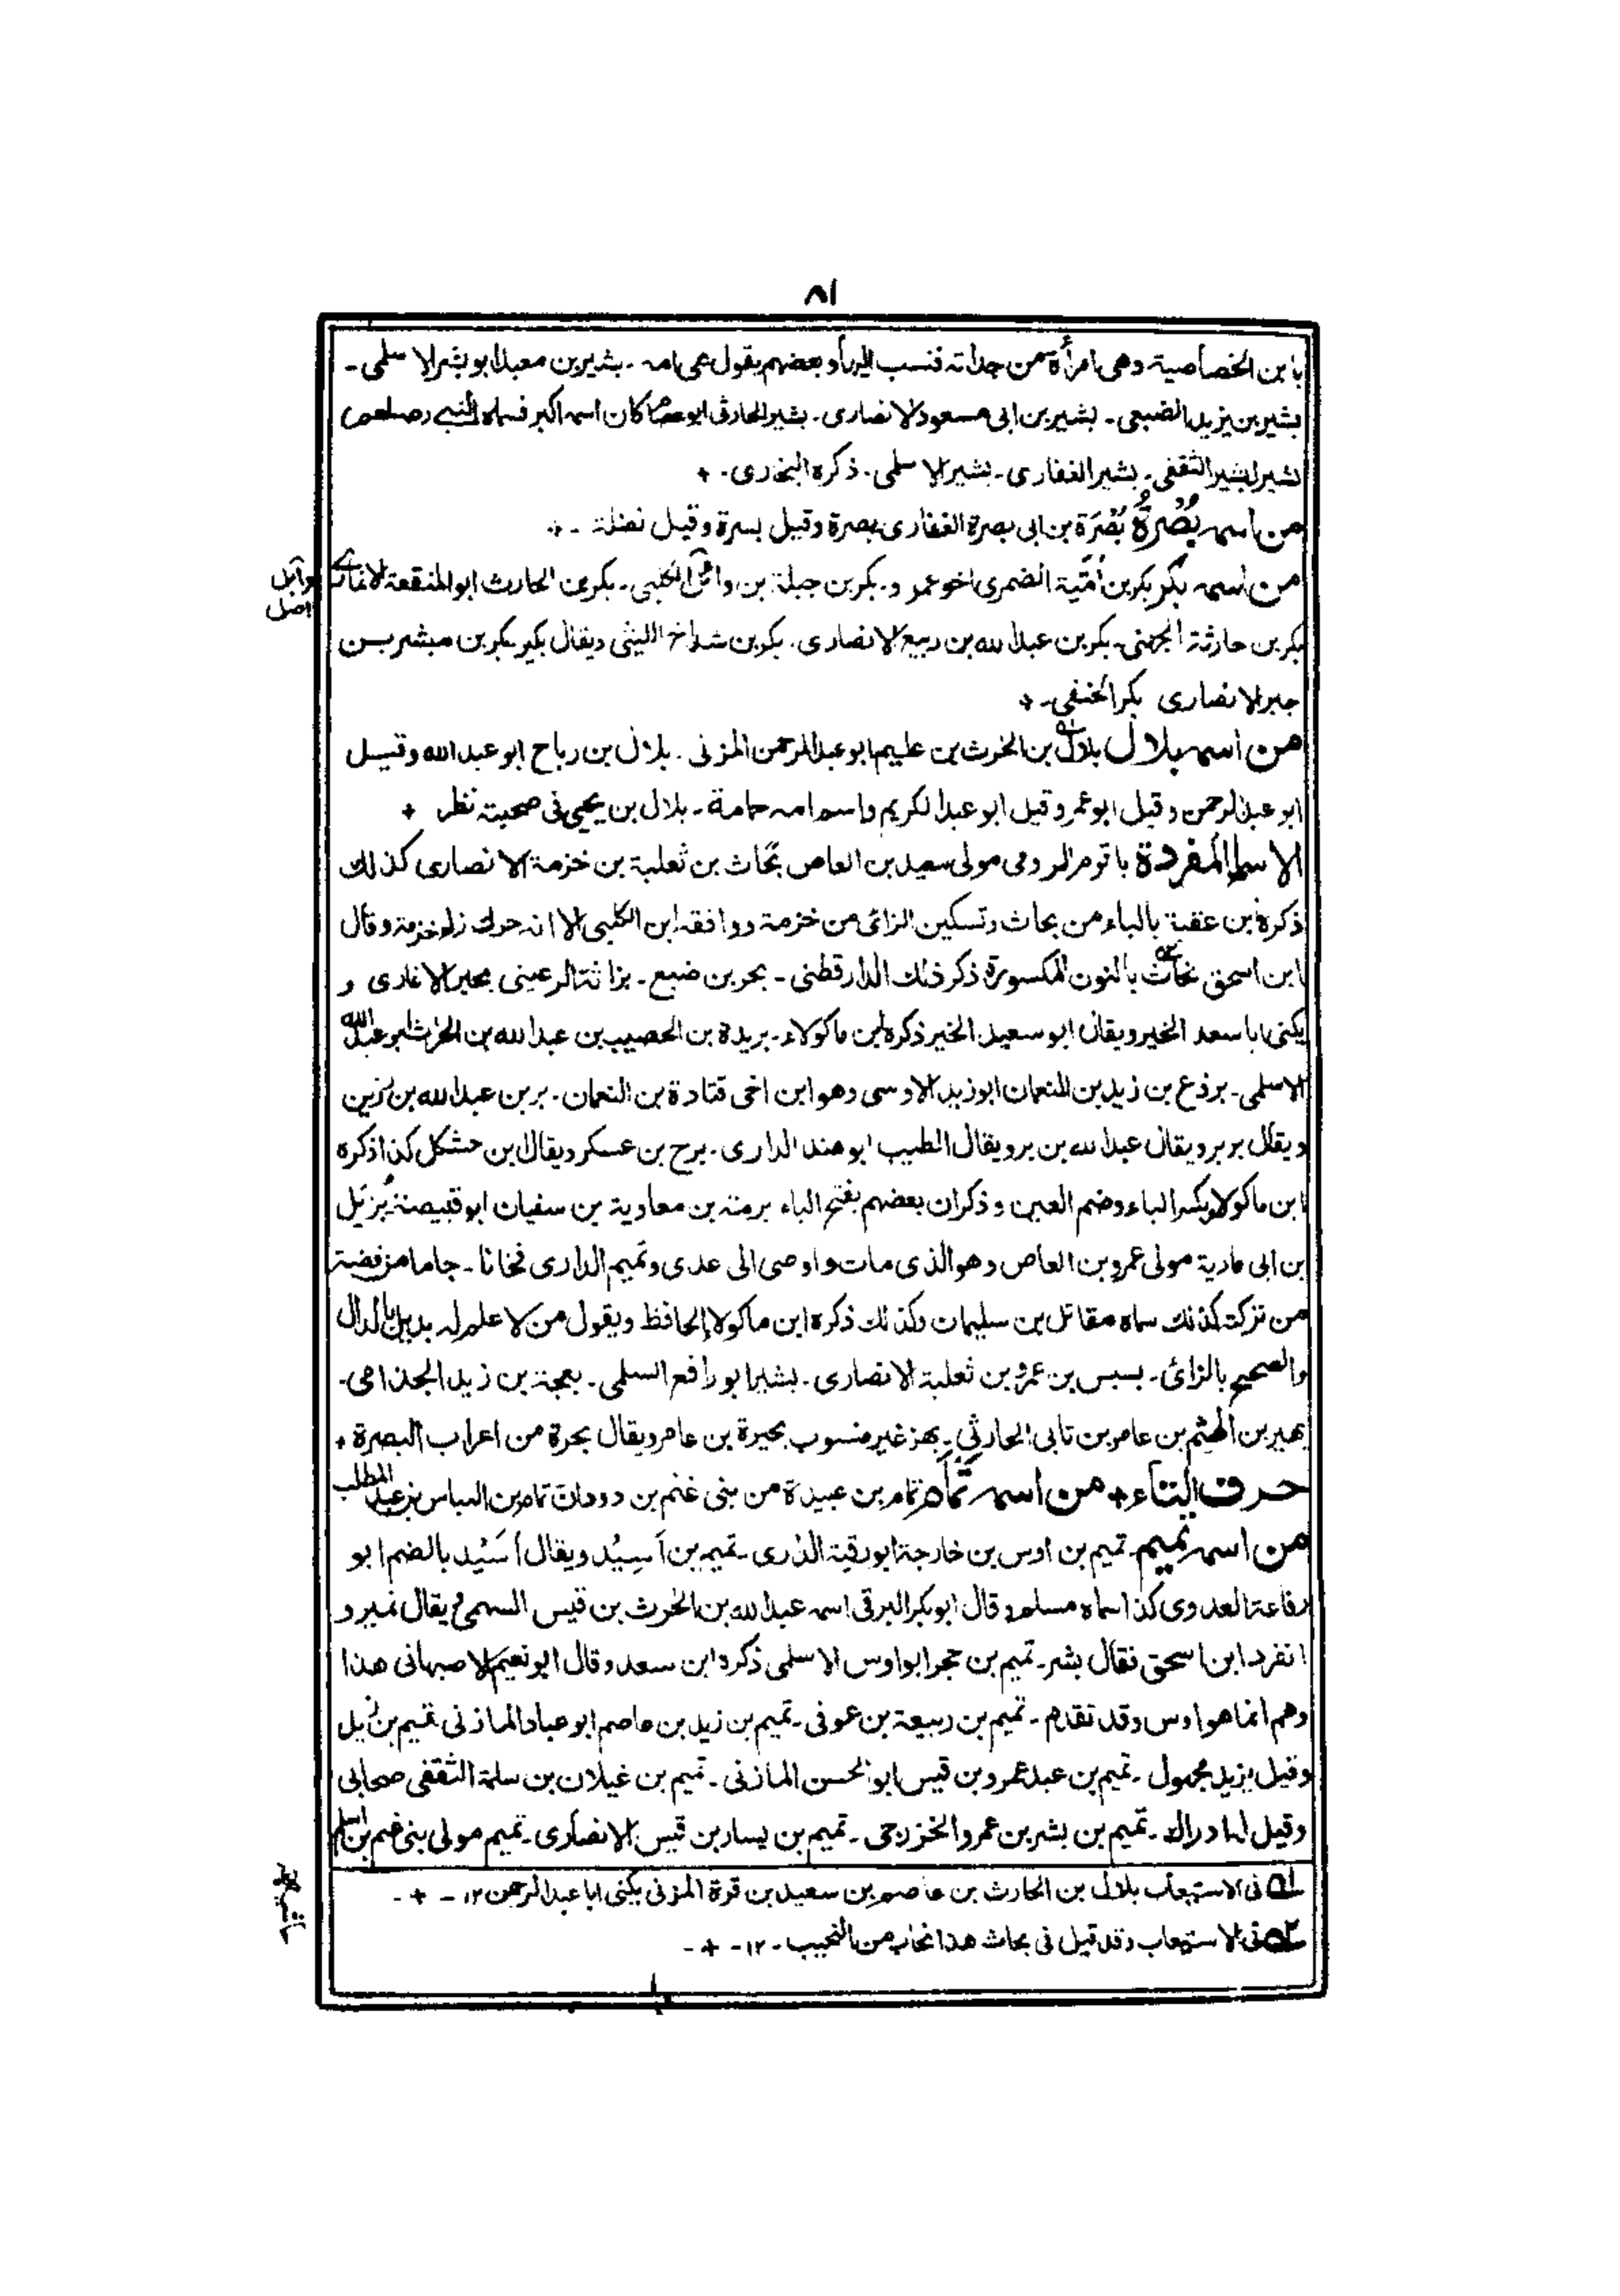 ٨١
بابن الخصاصية وهى امرأة من جداته فنسب اليها وبعضهم يقول هى امه ـ بشير بن معبد ابو بشر الاسلمى ـ
بشير بن يزيد الضبعى ـ بشير بن ابى مسعود الانصارى ـ بشير الحارثى ابو عصام كان اسمه اكبر فسماه النبى (صلعم)
بشير بشير الثقفى ـ بشير الغفارى ـ بشير الاسلمى ـ ذكره البخارى ـ +
من اسمه بُصْرَةُ بُصْرَة بن ابى بصرة الغفارى بصرة وقيل بسرة وقيل نضلة ـ +
من اسمه بكر بكر بن أُمَيّة الضمرى اخو عمرو ـ بكر بن جبلة بن وائل الكلبى ـ بكر بن الحارث ابو المنقعة الانمارى
وآبل اصل
بكر بن حارثة الجهنى ـ بكر بن عبد الله بن ربيع الانصارى ـ بكر بن شداخ الليثى ويقال بكير بكر بن مبشر بن
جبر الانصارى بكر الحنفى ـ +
من اسمه بلال بلال بن الحرث بن عليم ابو عبد الرحمن المزنى ـ بلال بن رباح ابو عبد الله وقيل
ابو عبد الرحمن وقيل ابو عمر وقيل ابو عبد الكريم واسم امه حمامة ـ بلال بن يحيى فى صحبته نظر +
الاسماء المفردة باقوم الرومى مولى سعيد بن العاص بحّاث بن ثعلبة بن خزمة الانصارى كذلك
ذكره بن عقبة بالباء من بحاث وتسكين الزائى من خزمة ووافقه ابن الكلبى الا انه حرك زاء خزمة وقال
ابن اسحق نحاث بالنون المكسورة ذكر ذلك الدارقطنى ـ بحر بن ضبع ـ بزائة الرعينى بحير الانمارى و
يكنى ابا سعد الخير ويقال ابو سعيد الخير ذكره ابن ماكولاء ـ بريدة بن الحصيب بن عبد الله بن الحرث ابو عبد الله
الاسلمى ـ برذع بن زيد بن النعمان ابو زيد الاوسى وهو ابن اخى قتادة بن النعمان ـ بر بن عبد الله بن رزين
ويقال بربر ويقال عبد الله بن بر ويقال الطبيب ابو هند الدارى ـ برح بن عسكر ويقال بن حشكل كذا ذكره
ابن ماكولا بكسر الباء وضم العين وذكر ان بعضهم بفتح الباء برمة بن معاوية بن سفيان ابو قبيصة بُزَيل
بن ابى مارية مولى عمرو بن العاص وهو الذى مات واوصى الى عدى وتميم الدارى فخانا ـ جاما من فضة
من تركته كذلك سماه مقاتل بن سليمان وكذلك ذكره ابن ماكولا الحافظ ويقول من لا علم له بديل بالدال
والصحيح بالزائ ـ بسبس بن عمرو بن ثعلبة الانصارى ـ بشير ابو رافع السلمى ـ بعجة بن زيد الجذامى ـ
بهير بن الهيثم بن عامر بن نابى الحارثى ـ بهز غير منسوب بحيرة بن عامر ويقال بحرة من اعراب البصرة +
حرف التاء + من اسمه تَمّام تمام بن عبيدة من بنى غنم بن دودان تمام بن العباس بن عبد المطلب
من اسمه تميم ـ تميم بن اوس بن خارجة ابو رقية الدارى ـ تميم بن اَسِيْد ويقال أُسَيْد بالضم ابو
رفاعة العدوى كذا سماه مسلم وقال ابو بكر البرقى اسمه عبد الله بن الحرث بن قيس السهمى ويقال نمير و
انفرد ابن اسحق فقال بشر ـ تميم بن حجر ابو اوس الاسلمى ذكره ابن سعد وقال ابو نعيم الاصبهانى هذا
وهم انما هو اوس وقد تقدم ـ تميم بن ربيعة بن عوفى ـ تميم بن زيد بن عاصم ابو عباد المازنى تميم بن زيد
وقيل يزيد مجهول ـ تميم بن عبد عمرو بن قيس ابو الحسن المازنى ـ تميم بن غيلان بن سلمة الثقفى صحابى
وقيل له ادراك ـ تميم بن بشر بن عمرو الخزرجى ـ تميم بن يسار بن قيس الانصارى ـ تميم مولى بنى غنم بن اسلم
ـه١ فى الاستيعاب بلال بن الحارث بن عاصم بن سعيد بن قرة المزنى يكنى ابا عبد الرحمن ١٢ ـ + ـ
ـه٢ فى الاستيعاب وقد قيل فى بحاث هذا نحاب من النحيب ـ ١٢ ـ + ـ